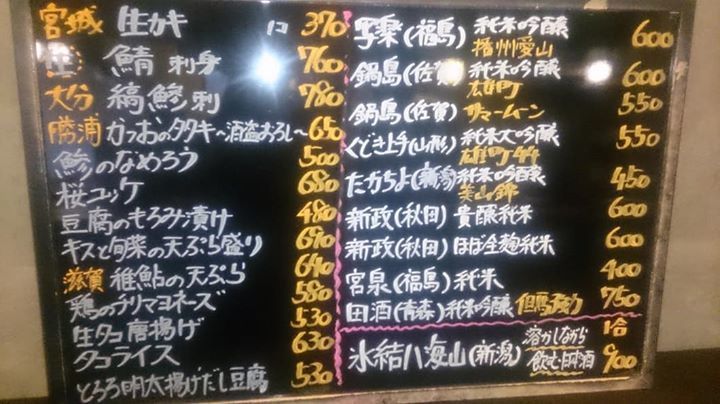 宮城 生カキ 1コ 370
生 鯖刺身 760
大分 縞鯵刺 780
勝浦 かつおのタタキ〜酒盗おろし〜 650
鯵のなめろう 500
桜ユッケ 680
豆腐のもろみ漬け 480
キスと旬菜の天ぷら盛り 690
滋賀 稚鮎の天ぷら 640
鶏のチリマヨネーズ 580
生タコ唐揚げ 530
タコライス 630
とろろ明太揚げだし豆腐 530
写楽(福島) 純米吟醸 播州愛山 600
鍋島(佐賀) 純米吟醸 雄町 600
鍋島(佐賀) サマームーン 550
くどき上手(山形) 純米大吟醸 雄町44 550
たかちよ(新潟) 純米吟醸 美山錦 450
新政(秋田) 貴醸純米 600
新政(秋田) ほぼ全麹純米 600
宮泉(福島) 純米 400
田酒(青森) 純米吟醸 但馬強力 750
1合
氷結八海山(新潟) 溶かしながら飲む日本酒 900